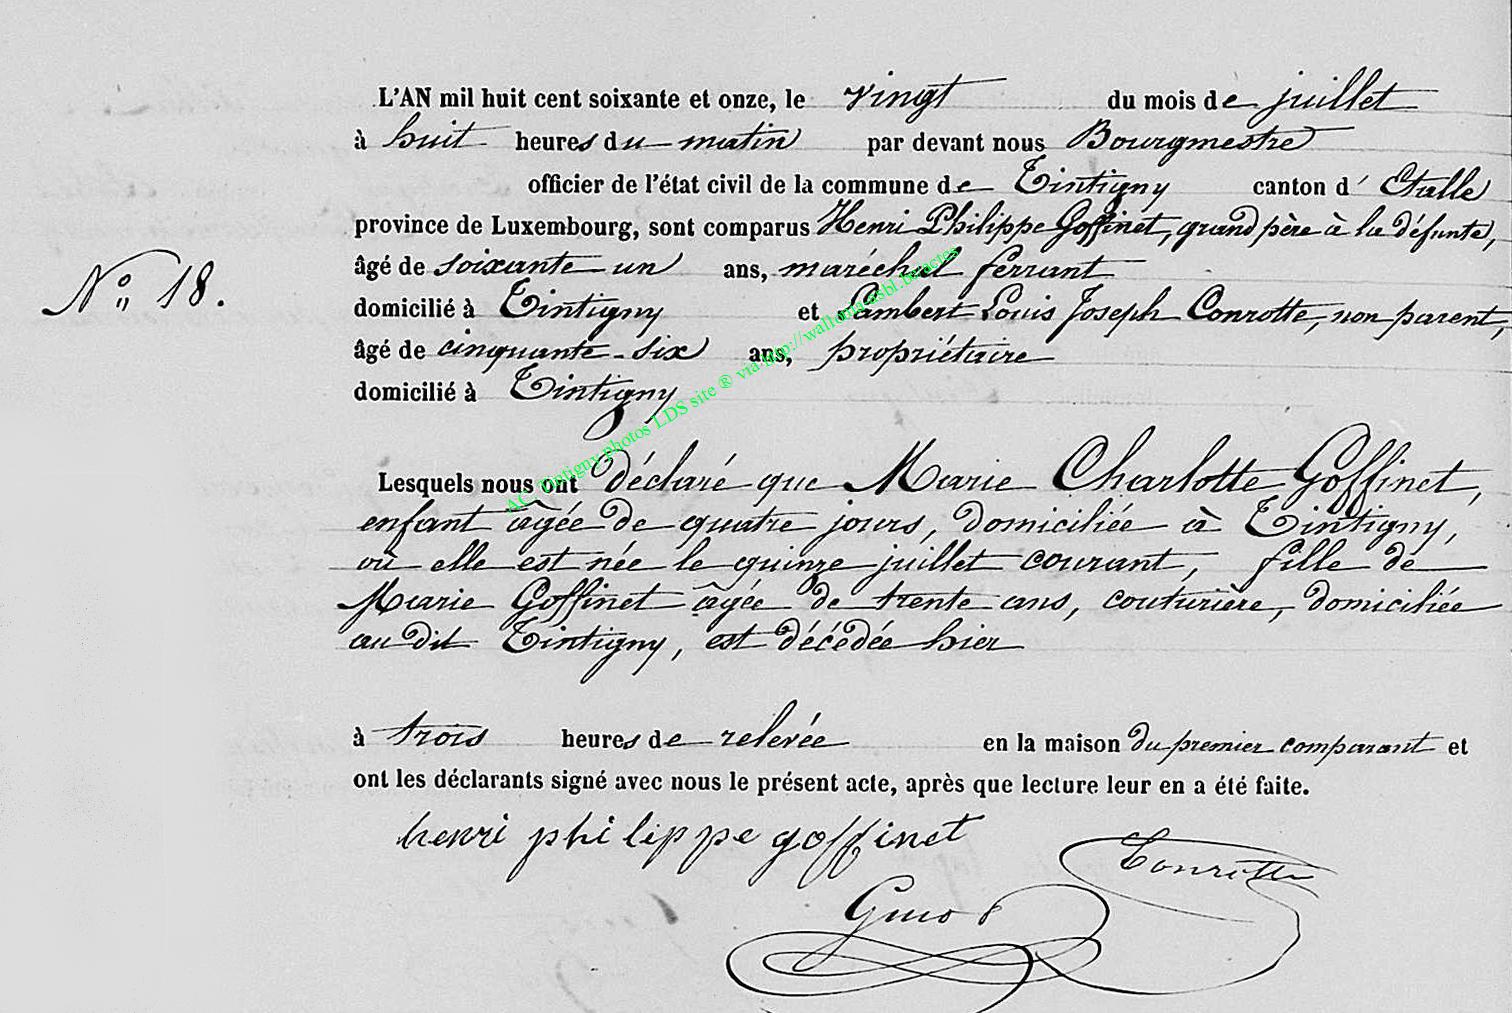 L'AN mil huit cent soixante et onze, le vingt du mois de juillet
à huit heures du matin par devant nous Bourgmestre
officier de l'état civil de la commune de Tintigny canton d' Etalle
province de Luxembourg, sont comparus Henri Philippe Goffinet, grand père à la défunte,
N° 18.
âgé de soixante-un ans, maréchal ferrant
domicilié à Tintigny et Lambert Louis Joseph Conrotte, non parent,
âgé de cinquante-six ans, propriétaire
domicilié à Tintigny
AC Tintigny photos LDS site ® via http://wallonia-asbl.be/actes
Lesquels nous ont déclaré que Marie Charlotte Goffinet,
enfant âgée de quatre jours, domiciliée à Tintigny,
où elle est née le quinze juillet courant, fille de
Marie Goffinet âgée de trente ans, couturière, domiciliée
au dit Tintigny, est décédée hier
à trois heures de relevée en la maison du premier comparant et
ont les déclarants signé avec nous le présent acte, après que lecture leur en a été faite.
henri philippe goffinet
Conrotte